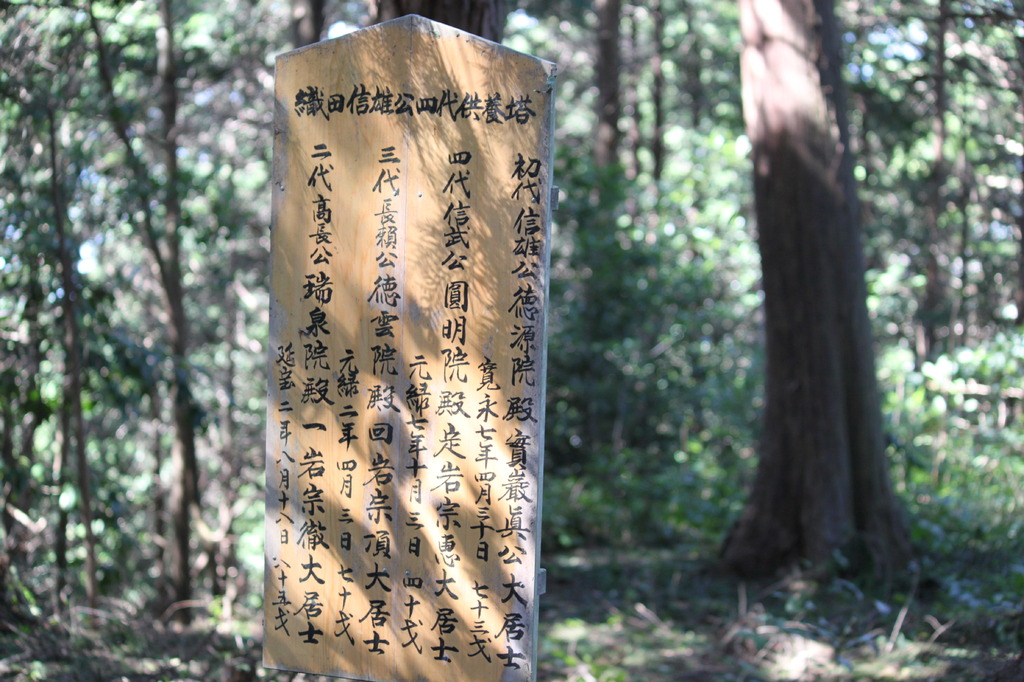 織田信雄公四代供養塔
初代信雄公徳源院殿實巌眞公大居士
寛永七年四月三十日 七十三才
四代信武公圓明院殿定岩宗恵大居士
元緑七年十月三日 四十才
三代長頼公徳雲院殿回岩宗頂大居士
元緑二年四月三日 七十才
二代高長公瑞泉院殿一岩宗徹大居士
延宝二年八月十八日 八十五才